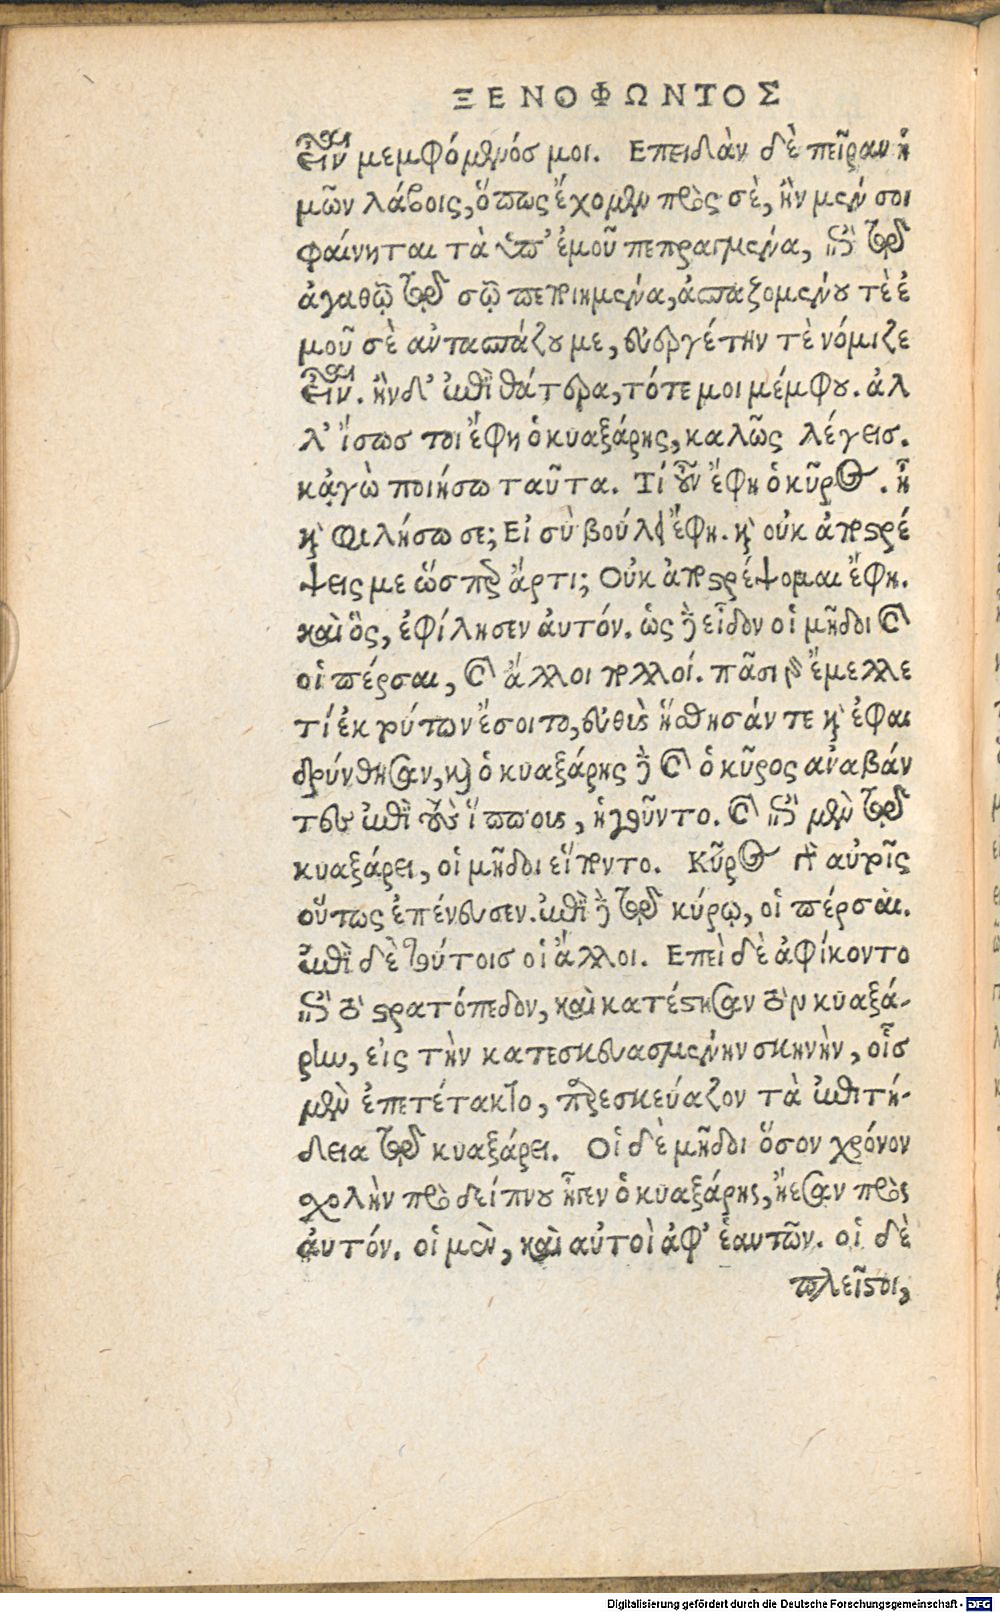 ΞΕΝΟΦΩΝΤΟΣ
εἶναι μεμφόμενός μοι. Επειδὰν δὲ πεῖραν ἡ
μῶν λάβοις, ὅπως ἔχομεν πρὸς σὲ, ἢν μέν σοι
φαίνηται τὰ ὑπ' ἐμοῦ πεπραγμένα, ἐπὶ τῷ
ἀγαθῷ τῷ σῷ πεποιημένα, ἀσπαζομένου τὲ ἐ
μοῦ σὲ ἀντασπάζου με, εὐεργέτην τὲ νόμιζε
εἶναι. ἢν δ' ἐπὶ θάτερα, τότε μοι μέμφου. ἀλ
λ' ἴσως τοι ἔφη ὁ κυαξάρης, καλῶς λέγεις.
κᾀγὼ ποιήσω ταῦτα. Τί οὖν ἔφη ὁ κῦρος. ἦ
καὶ φιλήσω σε; Εἰ σὺ βούλει ἔφη. καὶ οὐκ ἀποστρέ
ψεις με ὥσπερ ἄρτι; Οὐκ ἀποστρέψομαι ἔφη.
καὶ ὃς, ἐφίλησεν ἀυτόν. ὡς δὲ εἶδον οἱ μῆδοι καὶ
οἱ πέρσαι, καὶ ἄλλοι πολλοί. πᾶσι γὰρ ἔμελλε
τί ἐκ τούτων ἔσοιτο, εὐθὺς ἥσθησάν τε καὶ ἐφαι
δρύνθησαν, καὶ ὁ κυαξάρης δὲ καὶ ὁ κῦρος ἀναβάν
τες ἐπὶ τοὺς ἵππους, ἡγοῦντο. καὶ ἐπὶ μὲν τῷ
κυαξάρει, οἱ μῆδοι εἵποντο. Κῦρος γὰρ αὐτοῖς
οὕτως ἐπένευσεν. ἐπὶ δὲ τῷ κύρῳ, οἱ πέρσαι.
ἐπὶ δὲ τούτοις οἱ ἄλλοι. Επεὶ δὲ ἀφίκοντο
ἐπὶ τὸ στρατόπεδον, καὶ κατέστησαν τὸν κυαξά-
ρην, εἰς τὴν κατεσκευασμένην σκηνὴν, οἷς
μὲν ἐπετέτακτο, παρεσκεύαζον τὰ ἐπιτή-
δεια τῷ κυαξάρει. Οἱ δὲ μῆδοι ὅσον χρόνον
σχολὴν πρὸ δείπνου ἦγεν ὁ κυαξάρης, ἤεσαν πρὸς
ἀυτόν. οἱ μὲν, καὶ αὐτοὶ ἀφ' ἑαυτῶν. οἱ δὲ
πλεῖστοι,
Digitalisierung gefördert durch die Deutsche Forschungsgemeinschaft - DFG